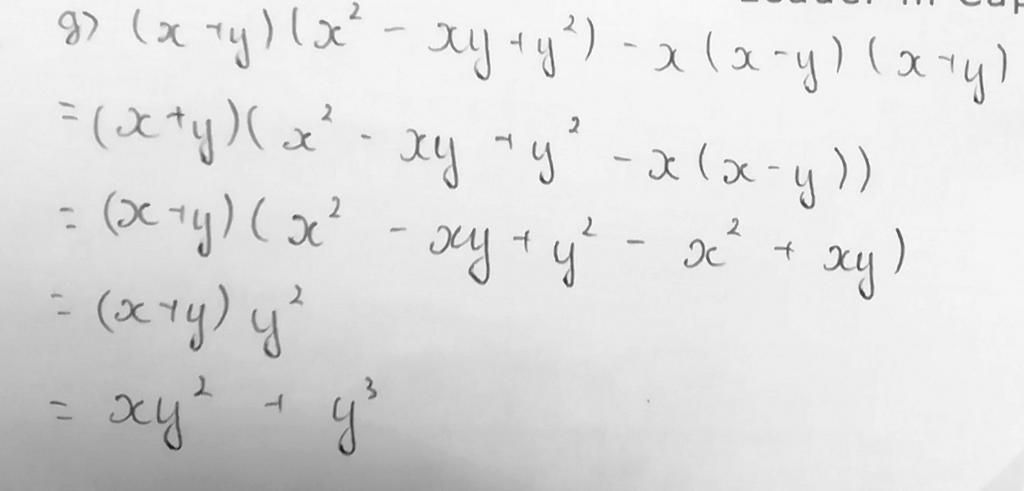 g) (x + y)(x² - xy + y²) - x(x - y)(x + y)
= (x + y)(x² - xy + y² - x(x - y))
= (x + y)(x² - xy + y² - x² + xy)
= (x + y) y²
= xy² + y³